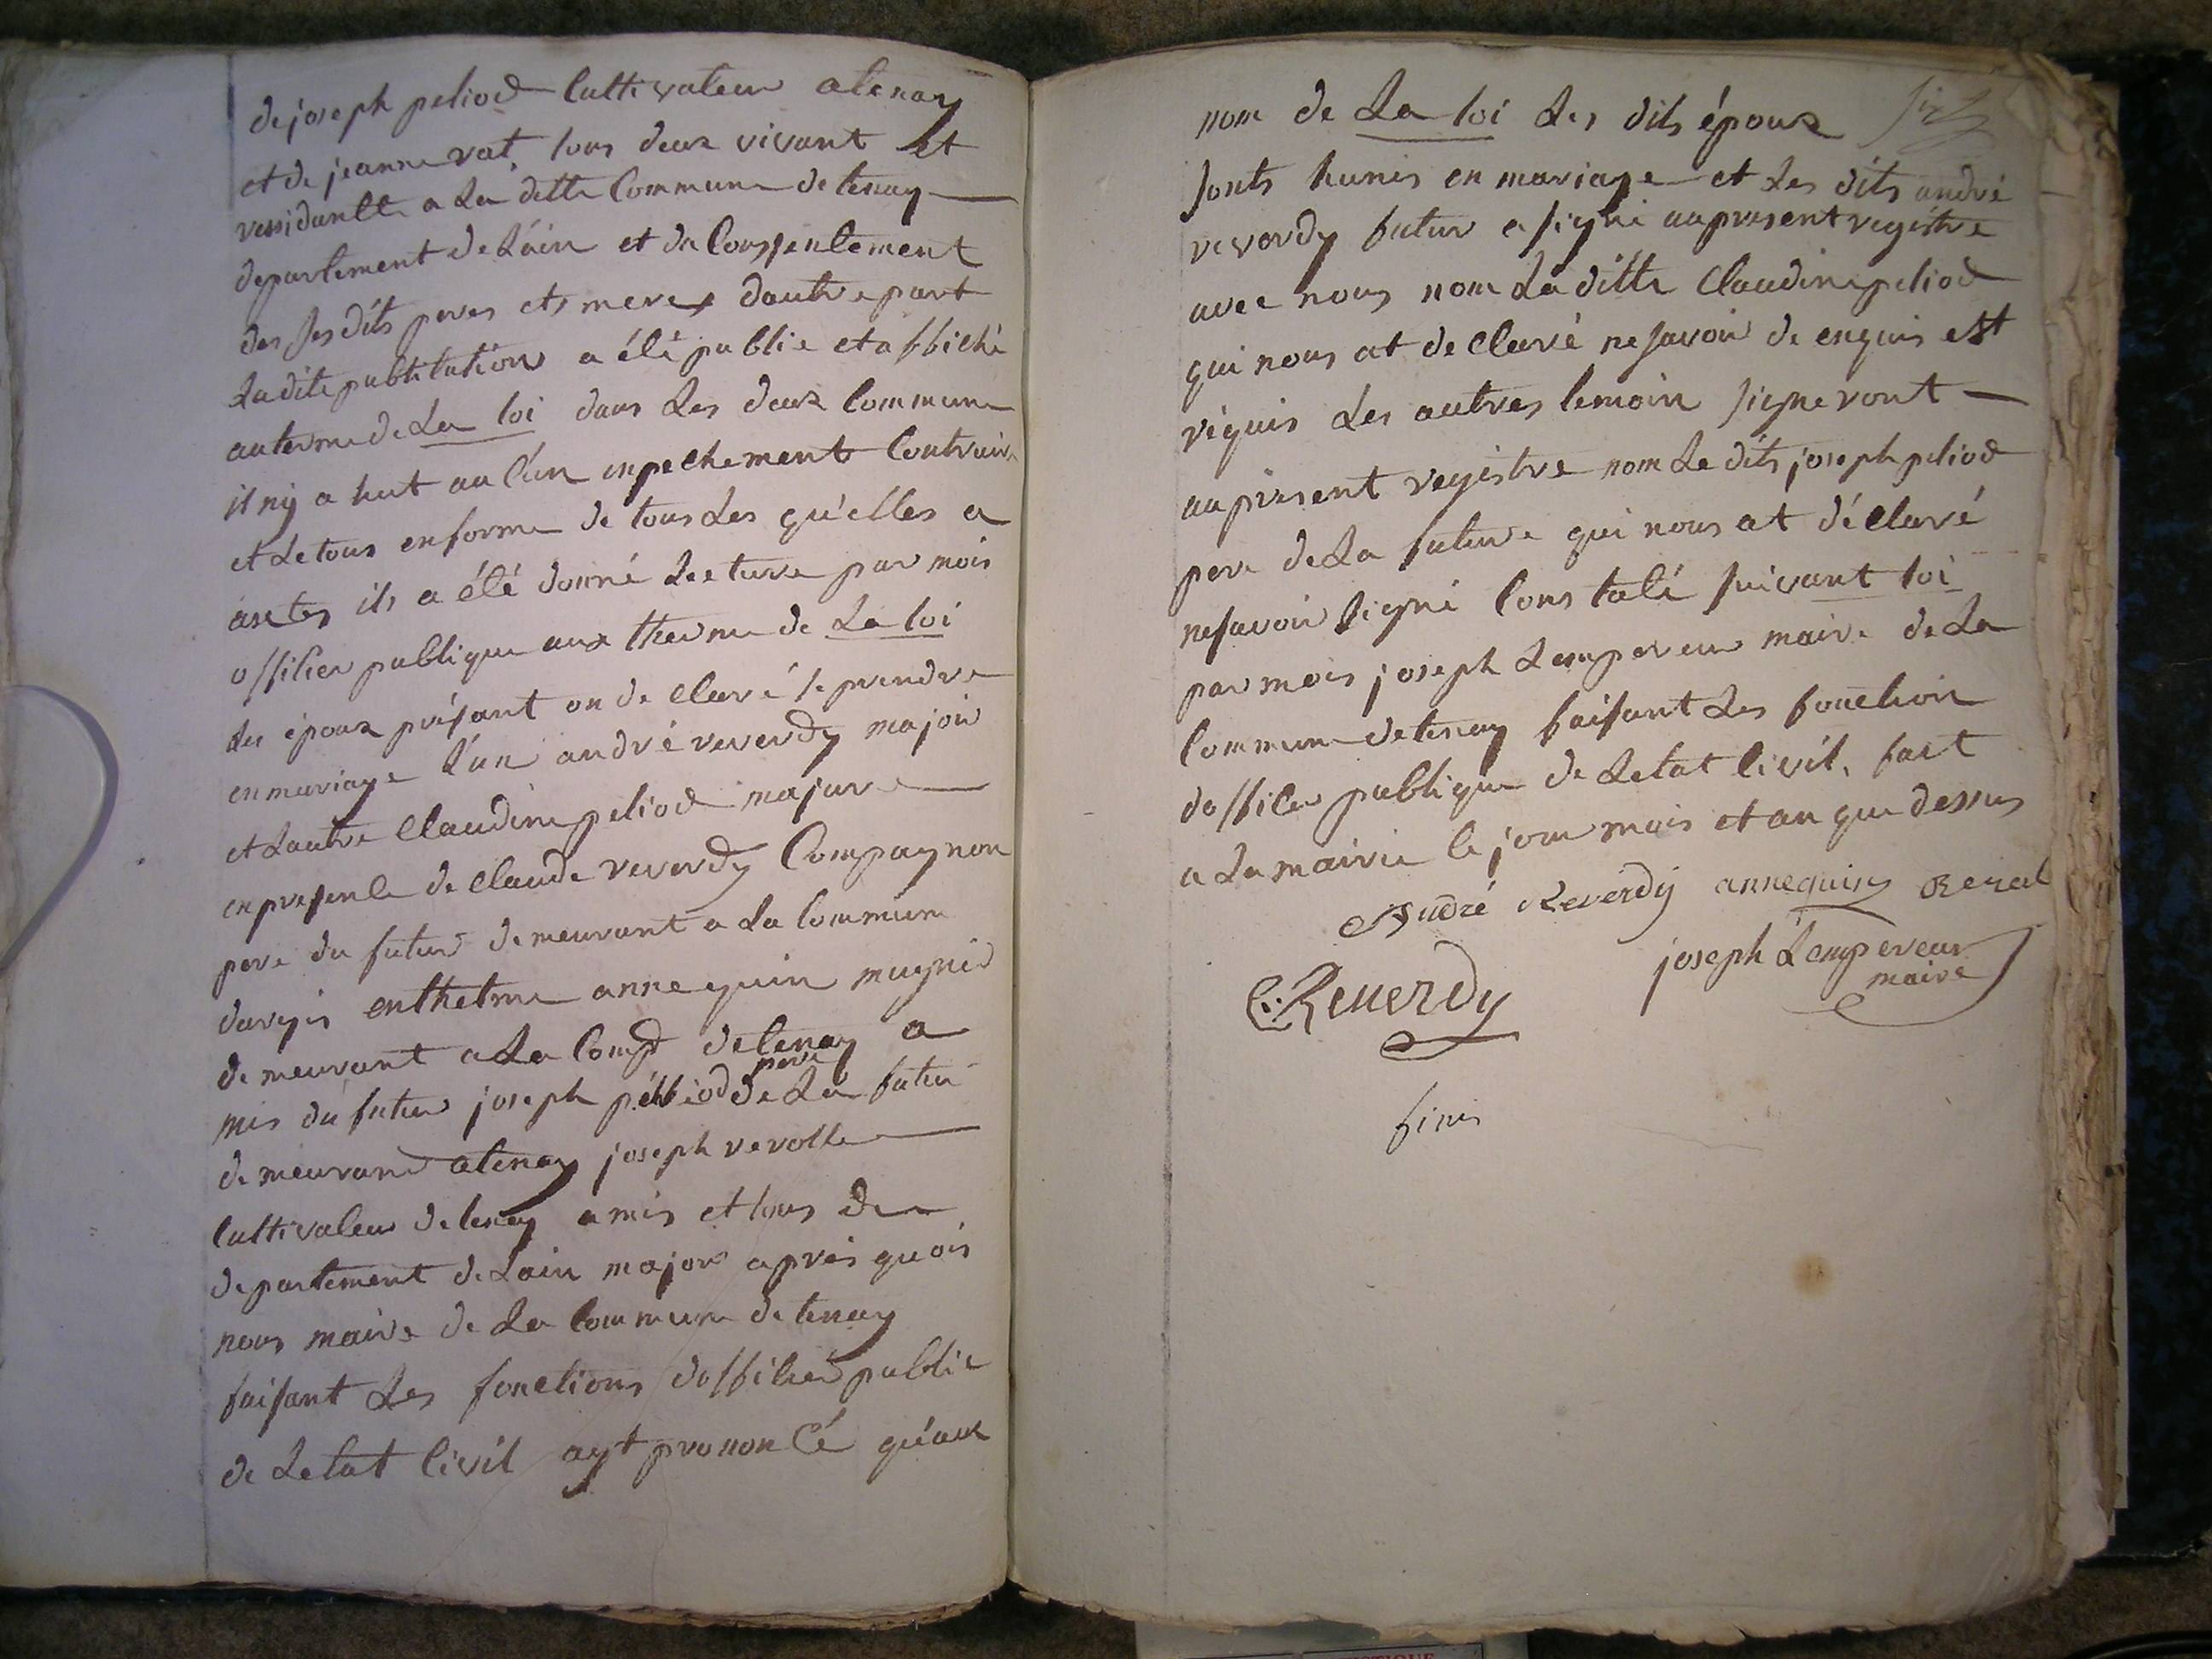 de joseph peliod Cultivateur a tenay
et de jeanne vat, tous deux vivant Et
ressidantte a La ditte Commune de tenay
departement de L'ain et du Conssentement
des ses dits peres ets meres d'autre part
La dite publication a été publie et affiché
au terme de La loi dans Les deux Commune
il ny a hut au Cun enpechement Contraire
et de tous en forme de tous Les qu'elles a
actes ils a été donné Lecture par mois
officier publique aux therme de La loi
Les époux présant on declaré se prendre
en mariage L'un andré reverdy majoir
et L'autre Claudine peliod majure
en presence de Claude reverdy Compagnon
pere du futur demeurant a La Commune
dargis enthelme annequin magnié
demeurant a La Comd de tenay a
mis du futur joseph peliod pere de La futur
demeurand a tenay joseph revolle
Cultivateur de tenay amis et tous du
departement de Lain major après quois
nous maire de La Commune de tenay
faisant Les fonctions d'officier public
de Letat Civil ayt prononcé qu'aux
nom de La loi Les dits époux
sonts hunis en mariage et Les dits andré
reverdy futur a signé au present registre
avec nous nom La ditte Claudine peliod
qui nous at declaré ne savoir de enquis est
réquis Les autres temoin signeront
au présent registre nom Le dits joseph peliod
pere de La future qui nous at déclaré
ne savoir signé Constaté suivant loi
par mois joseph Lempereur maire de La
Commune de tenay faisant Les fonction
d'officier publique de Letat Civil, fait
a La mairie le jour mois et an que dessus
André Reverdy annequin Reval
joseph Lempereur
maire
C. Reverdy
finis